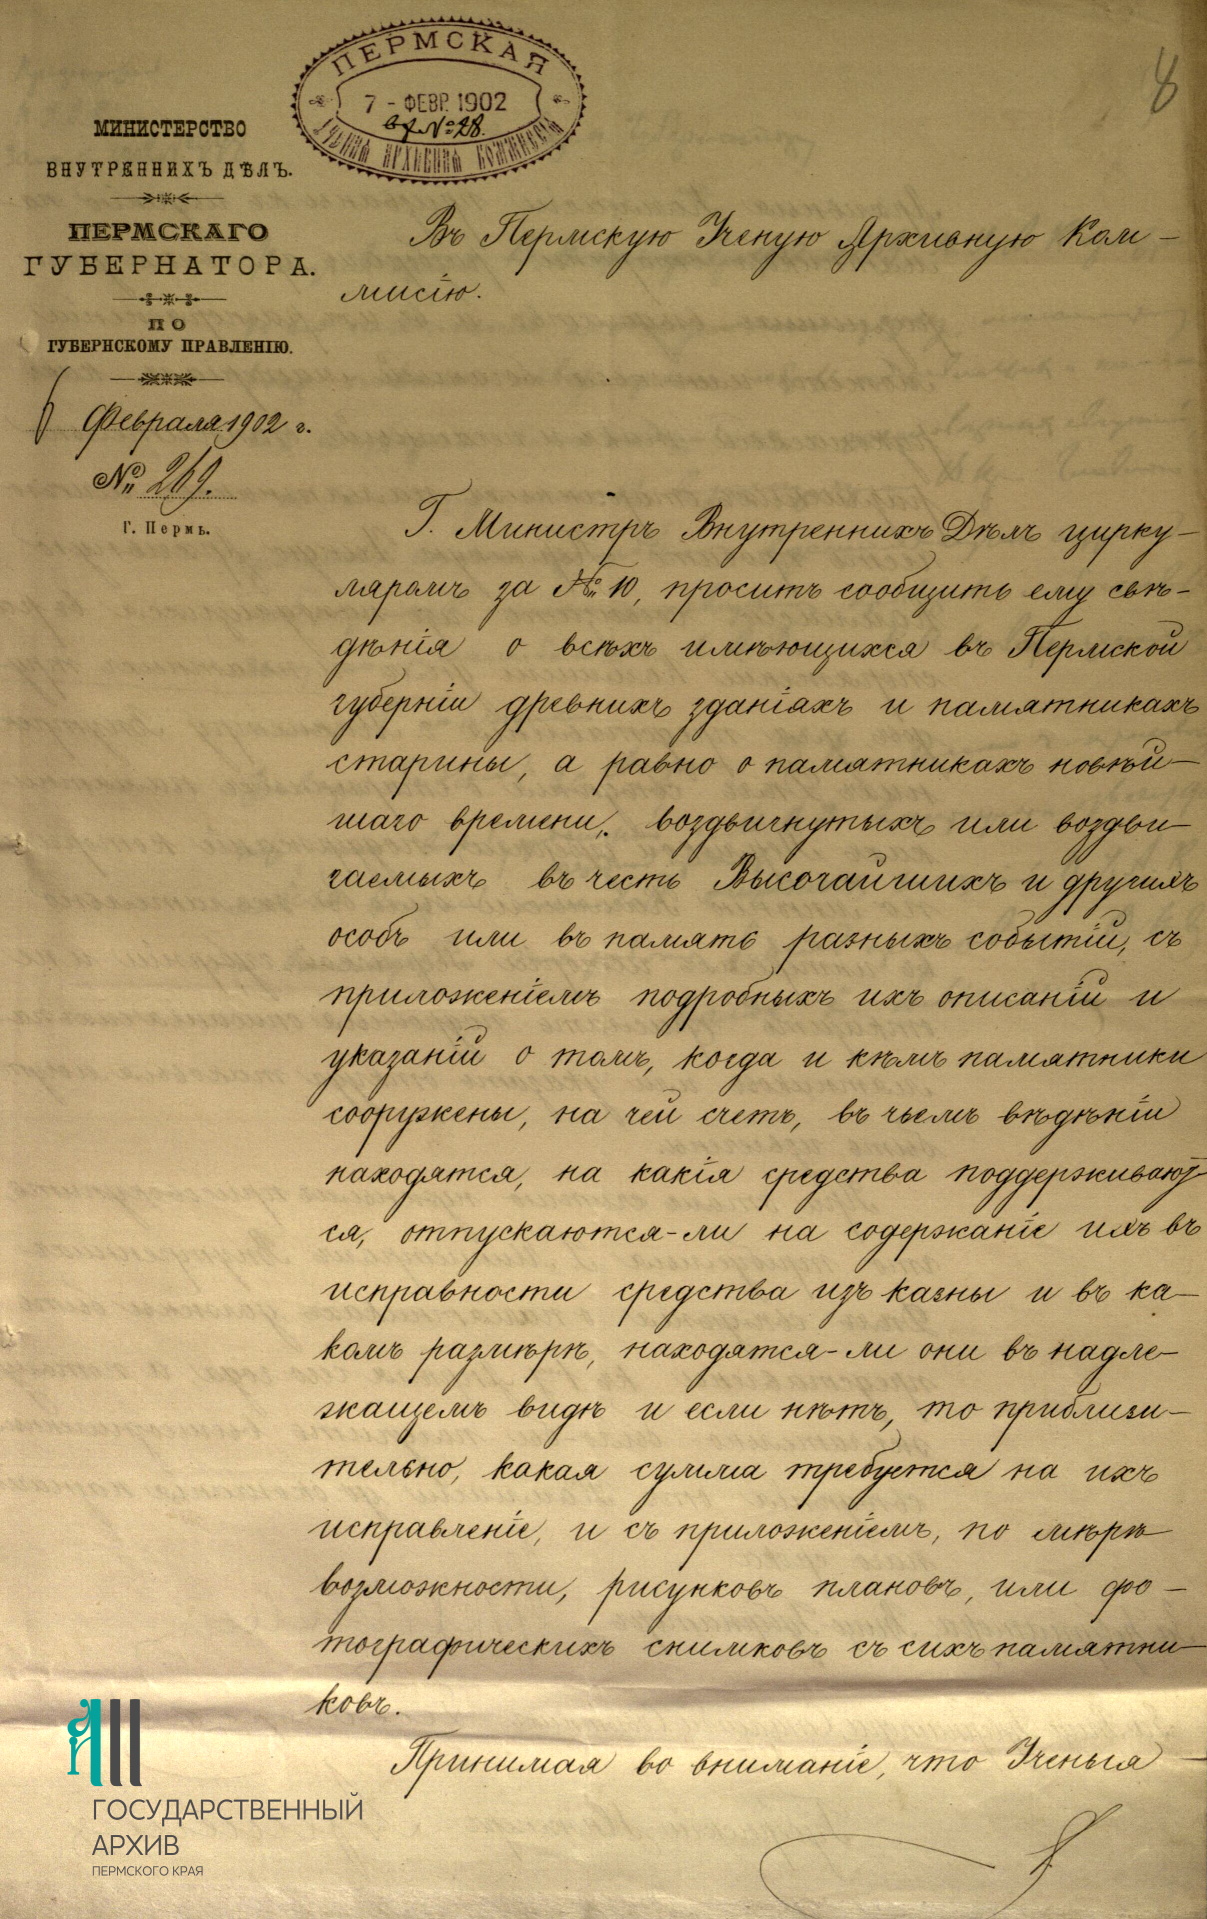 8
ПЕРМСКАЯ
7 - ФЕВР. 1902
вх № 28.
УЧЕНАЯ АРХИВНАЯ КОММИССІЯ
МИНИСТЕРСТВО
ВНУТРЕННИХЪ ДѢЛЪ.
ПЕРМСКАГО
ГУБЕРНАТОРА.
ПО
ГУБЕРНСКОМУ ПРАВЛЕНІЮ.
6 Февраля 1902 г.
№ 269.
Г. Пермь.
Въ Пермскую Ученую Архивную Ком-
мисію.
Г. Министръ Внутреннихъ Дѣлъ цирку-
ляромъ за № 10, проситъ сообщить ему свѣ-
дѣнія о всѣхъ имѣющихся въ Пермской
губерніи древнихъ зданіяхъ и памятникахъ
старины, а равно о памятникахъ новѣй-
шаго времени, воздвигнутыхъ или воздви-
гаемыхъ въ честь Высочайшихъ и другихъ
особъ или въ память разныхъ событій, съ
приложеніемъ подробныхъ ихъ описаній и
указаній о томъ, когда и кѣмъ памятники
сооружены, на чей счетъ, въ чьемъ вѣдѣніи
находятся, на какія средства поддерживают-
ся, отпускаются-ли на содержаніе ихъ въ
исправности средства изъ казны и въ ка-
комъ размѣрѣ, находятся-ли они въ надле-
жащемъ видѣ и если нѣтъ, то приблизи-
тельно, какая сумма требуется на ихъ
исправленіе, и съ приложеніемъ, по мѣрѣ
возможности, рисунковъ плановъ, или фо-
тографическихъ снимковъ съ сихъ памятни-
ковъ.
Принимая во вниманіе, что Ученыя
ГОСУДАРСТВЕННЫЙ
АРХИВ
ПЕРМСКОГО КРАЯ